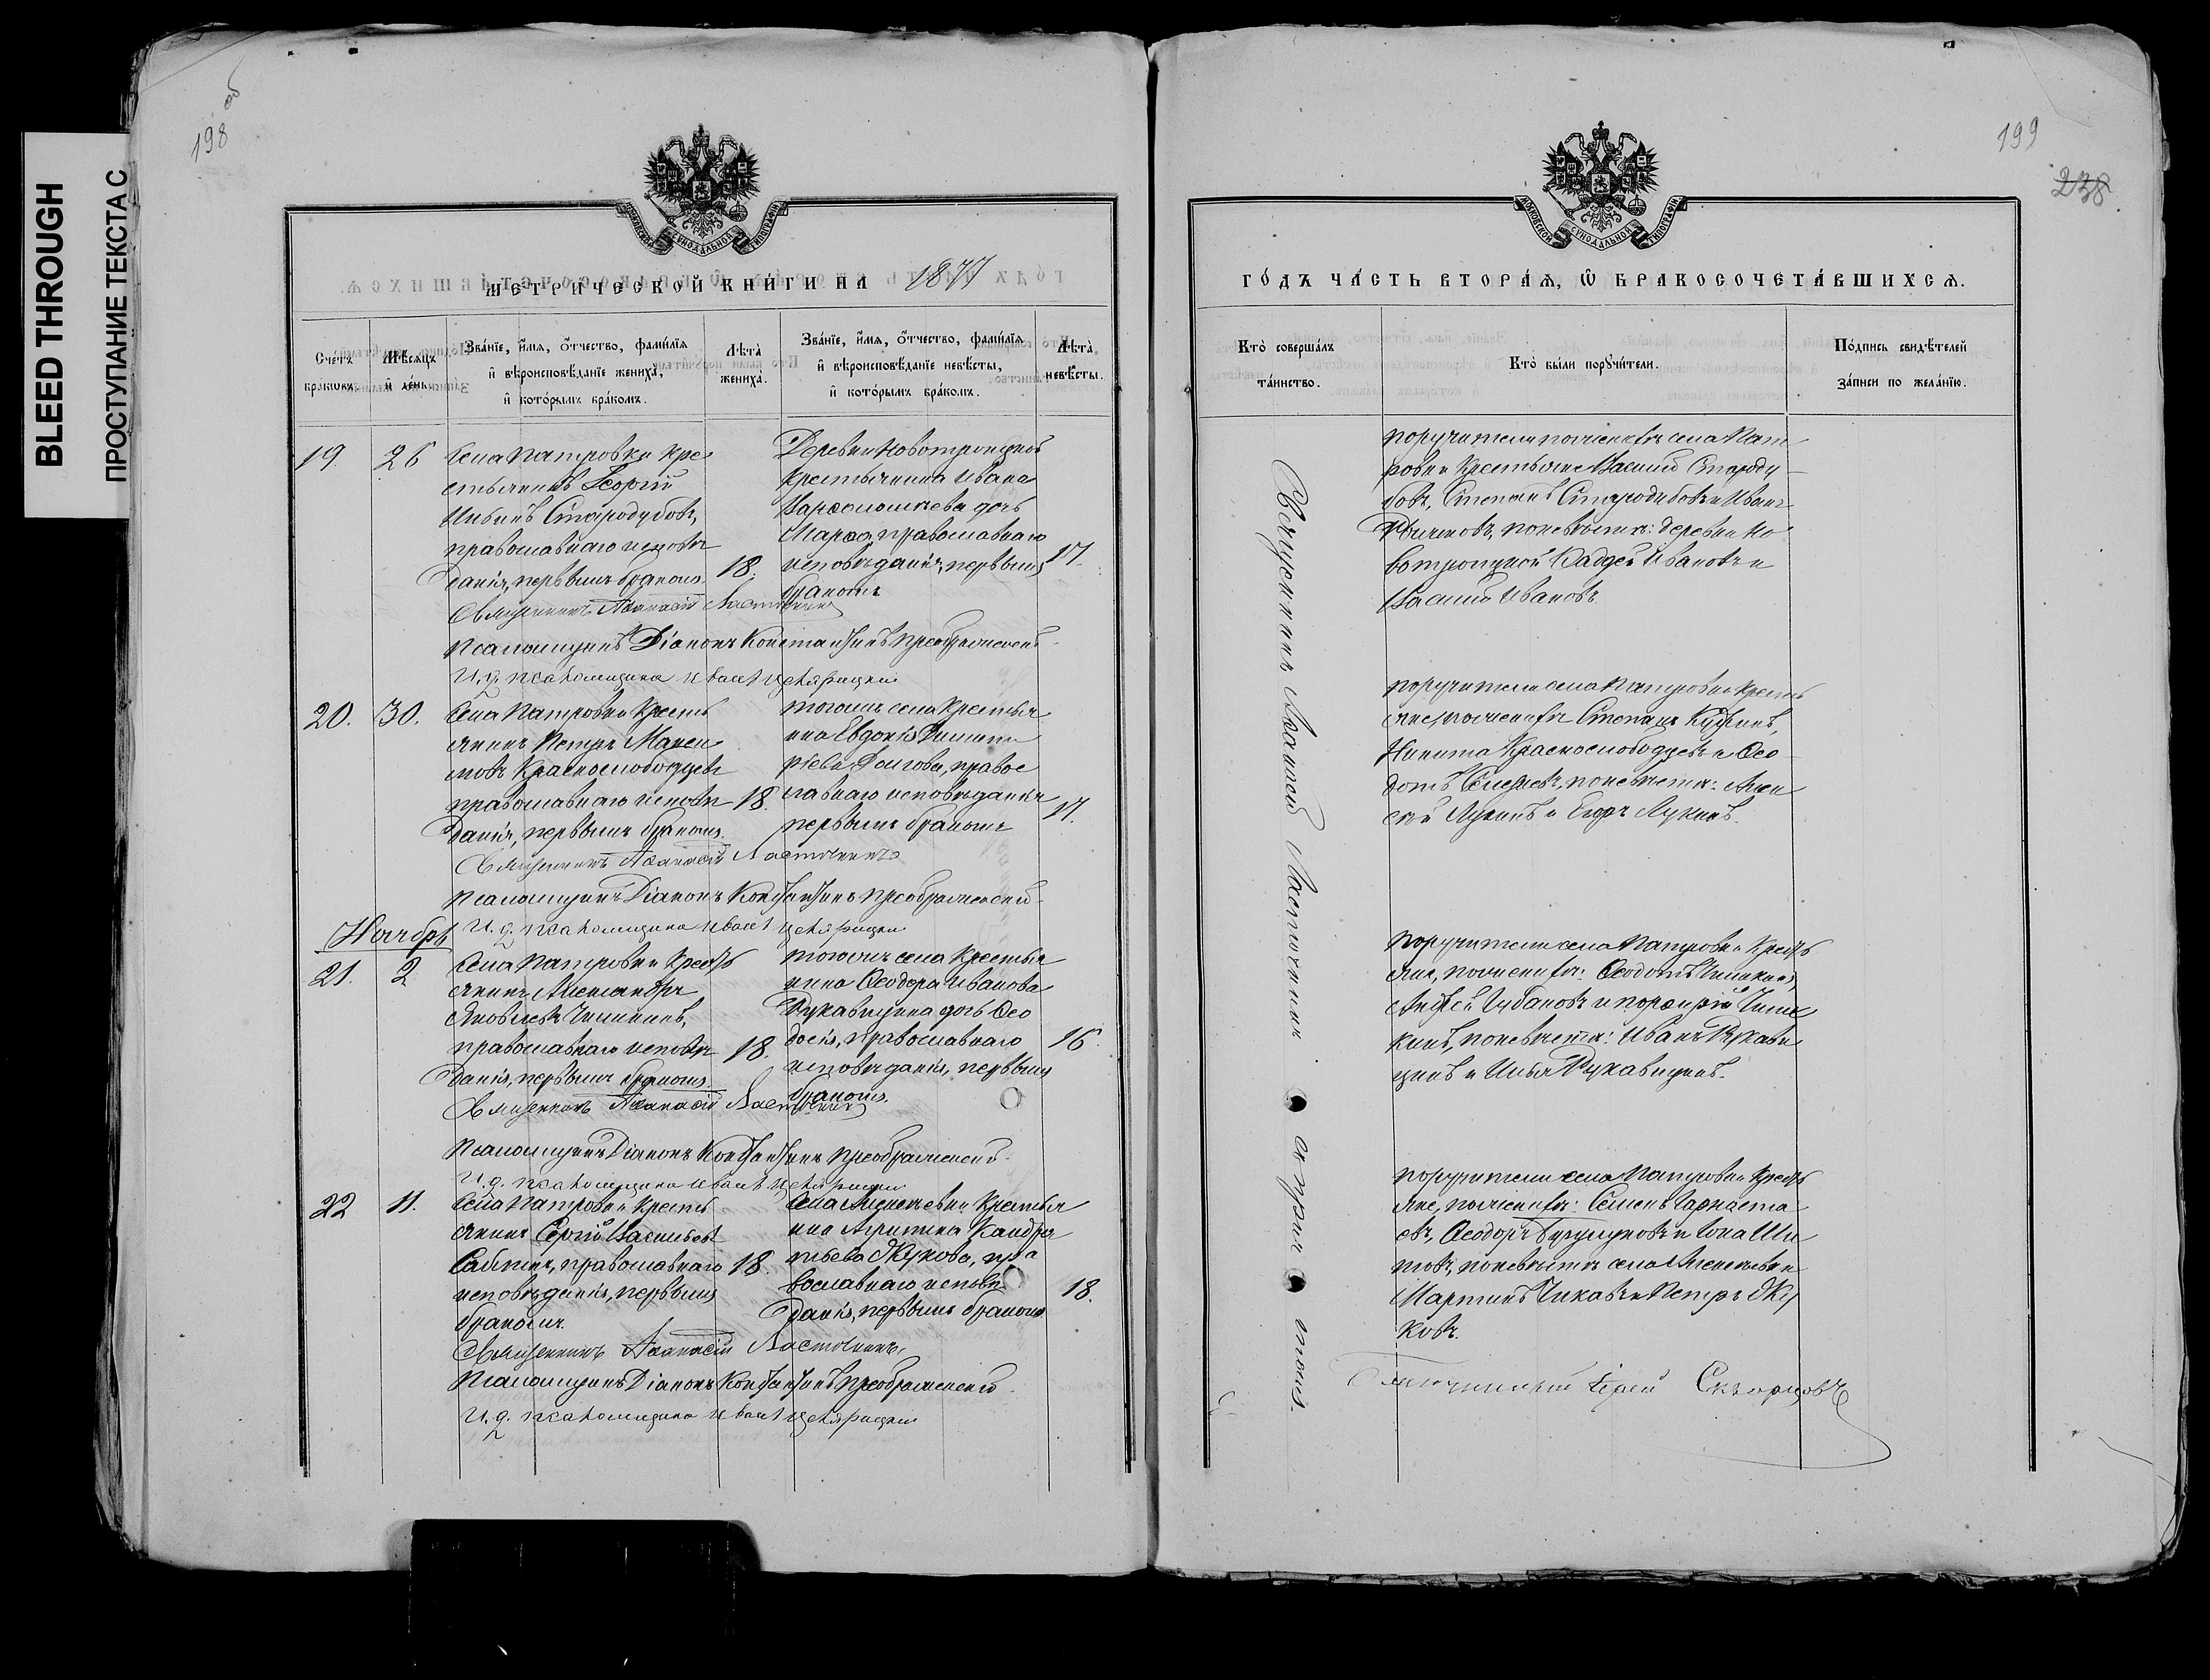 BLEED THROUGH
ПРОСТУПАНИЕ ТЕКСТА С
198 об
МОСКОВСКОЙ СѴНОДАЛЬНОЙ ТИПОГРАФІИ
МЕТРИЧЕСКОЙ КНИГИ НА 1877
Счетъ браковъ.
Мѣсяцъ и день.
Званїе, имя, отчество, фамилїя и вѣроисповѣданїе жениха, и которымъ бракомъ.
Лѣта жениха.
Званїе, имя, отчество, фамилїя и вѣроисповѣданїе невѣсты, и которымъ бракомъ.
Лѣта невѣсты.
19. 26
Села Патровки кре
стьянинъ Георгій
Ильинъ Стародубовъ,
православнаго исповѣ
данія, первымъ бракомъ.
18.
Деревни Новотроицкой
крестьянина Ивана
Варѳоломеева дочь
Марѳа, православнаго
исповѣданія, первымъ
бракомъ
17.
Священникъ Аѳанасій Ласточкинъ
Псаломщикъ Діаконъ Константинъ Преображенскій
И. д. псаломщика
20. 30.
Села Патровки кресть
янинъ Петръ Макси
мовъ Краснослободцевъ
православнаго исповѣ
данія, первымъ бракомъ.
18.
тогожъ села крестьян
ка Евдокія Димит
ріева Долгова, право
славнаго исповѣданія
первымъ бракомъ
17.
Священникъ Аѳанасій Ласточкинъ
Псаломщикъ Діаконъ Константинъ Преображенскій
И. д. псаломщика
Ноябрь
21. 2
Села Патровки кресть
янинъ Александръ
Яковлевъ Чишкинъ,
православнаго исповѣ
данія, первымъ бракомъ.
18.
тогожъ села крестья
нина Ѳеодора Иванова
Рукавицына дочь Ѳео
досія, православнаго
исповѣданія, первымъ
бракомъ.
16.
Священникъ Аѳанасій Ласточкинъ
Псаломщикъ Діаконъ Константинъ Преображенскій
И. д. псаломщика
22 11.
Села Патровки кресть
янинъ Сергій Васильевъ
православнаго
исповѣданія, первымъ
бракомъ.
18.
Села Алексѣевки крестьян
ка Агрипина Кандра
тьева Жукова, пра
вославнаго исповѣ
данія, первымъ бракомъ
18.
Священникъ Аѳанасій Ласточкинъ
Псаломщикъ Діаконъ Константинъ Преображенскій
И. д. псаломщика
199
238
МОСКОВСКОЙ СѴНОДАЛЬНОЙ ТИПОГРАФІИ
ГОДЪ ЧАСТЬ ВТОРАЯ, Ѡ БРАКОСОЧЕТАВШИХСЯ.
Кто совершалъ таинство.
Кто были поручители.
Подпись свидѣтелей записи по желанїю.
Священникъ Ласточкинъ
съ причтомъ.
поручители по женихѣ села Пат
ровки крестьяне Василій Староду
бовъ, Степанъ Стародубовъ и Иванъ
по невѣстѣ: деревни Но
вотроицкой Фаддей Ивановъ и
Василій Ивановъ.
поручители села Патровки кресть
яне, по женихѣ Степанъ
Никита Краснослободцевъ и Ѳео
дотъ по невѣстѣ: Алек
сѣй Лукинъ и Егоръ Лукинъ.
поручители села Патровки кресть
яне, по женихѣ: Ѳеодотъ Чишкинъ,
Андрей и Порфирій Чиш
кинъ, по невѣстѣ: Иванъ Рукави
цынъ и Илья Рукавицынъ.
поручители села Патровки кресть
яне, по женихѣ: Семенъ
Ѳеодоръ и Іона Ши
товъ, по невѣстѣ села Алексѣевки
Мартинъ и Петръ Жу
ковъ.
Іерей Скворцовъ